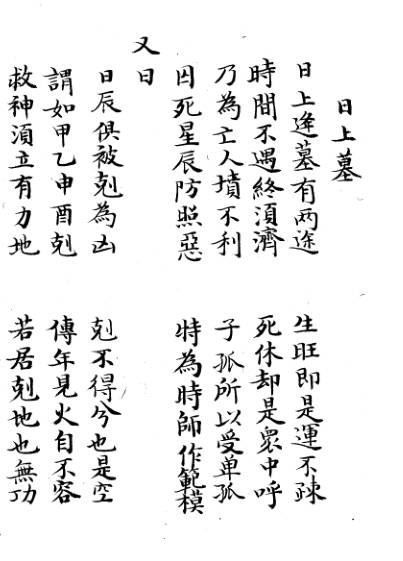 日上墓
日上逢墓有两途 生旺即是運不踈
時間不遇終須濟 死休却是衆中呼
乃為亡人墳不利 子孤所以受单孤
囚死星辰防照惡 特為時師作範模
又曰
日辰俱被剋為凶 剋不得兮也是空
謂如甲乙申酉剋 傳年見火自不容
救神須立有力地 若居剋地也無功